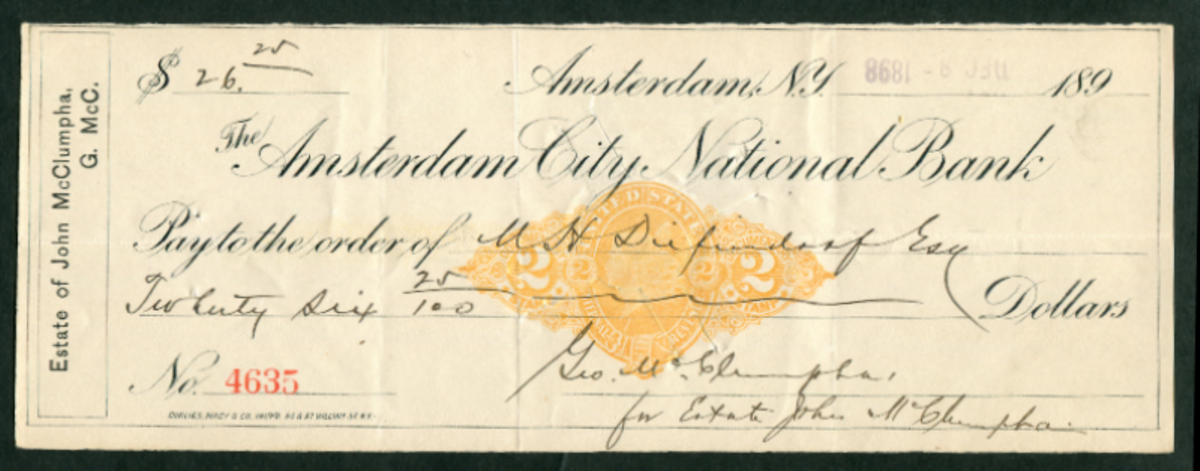 Estate of John McClumpha,
G. McC.
$ 26. 25
Amsterdam, N.Y. DEC 9 - 1898 189
The Amsterdam City National Bank
Pay to the order of M H Diefendorf Esq
Twenty Six 25/100 Dollars
UNITED STATES
2 2 2 2
No. 4635
Geo. McClumpha.
for Estate John McClumpha